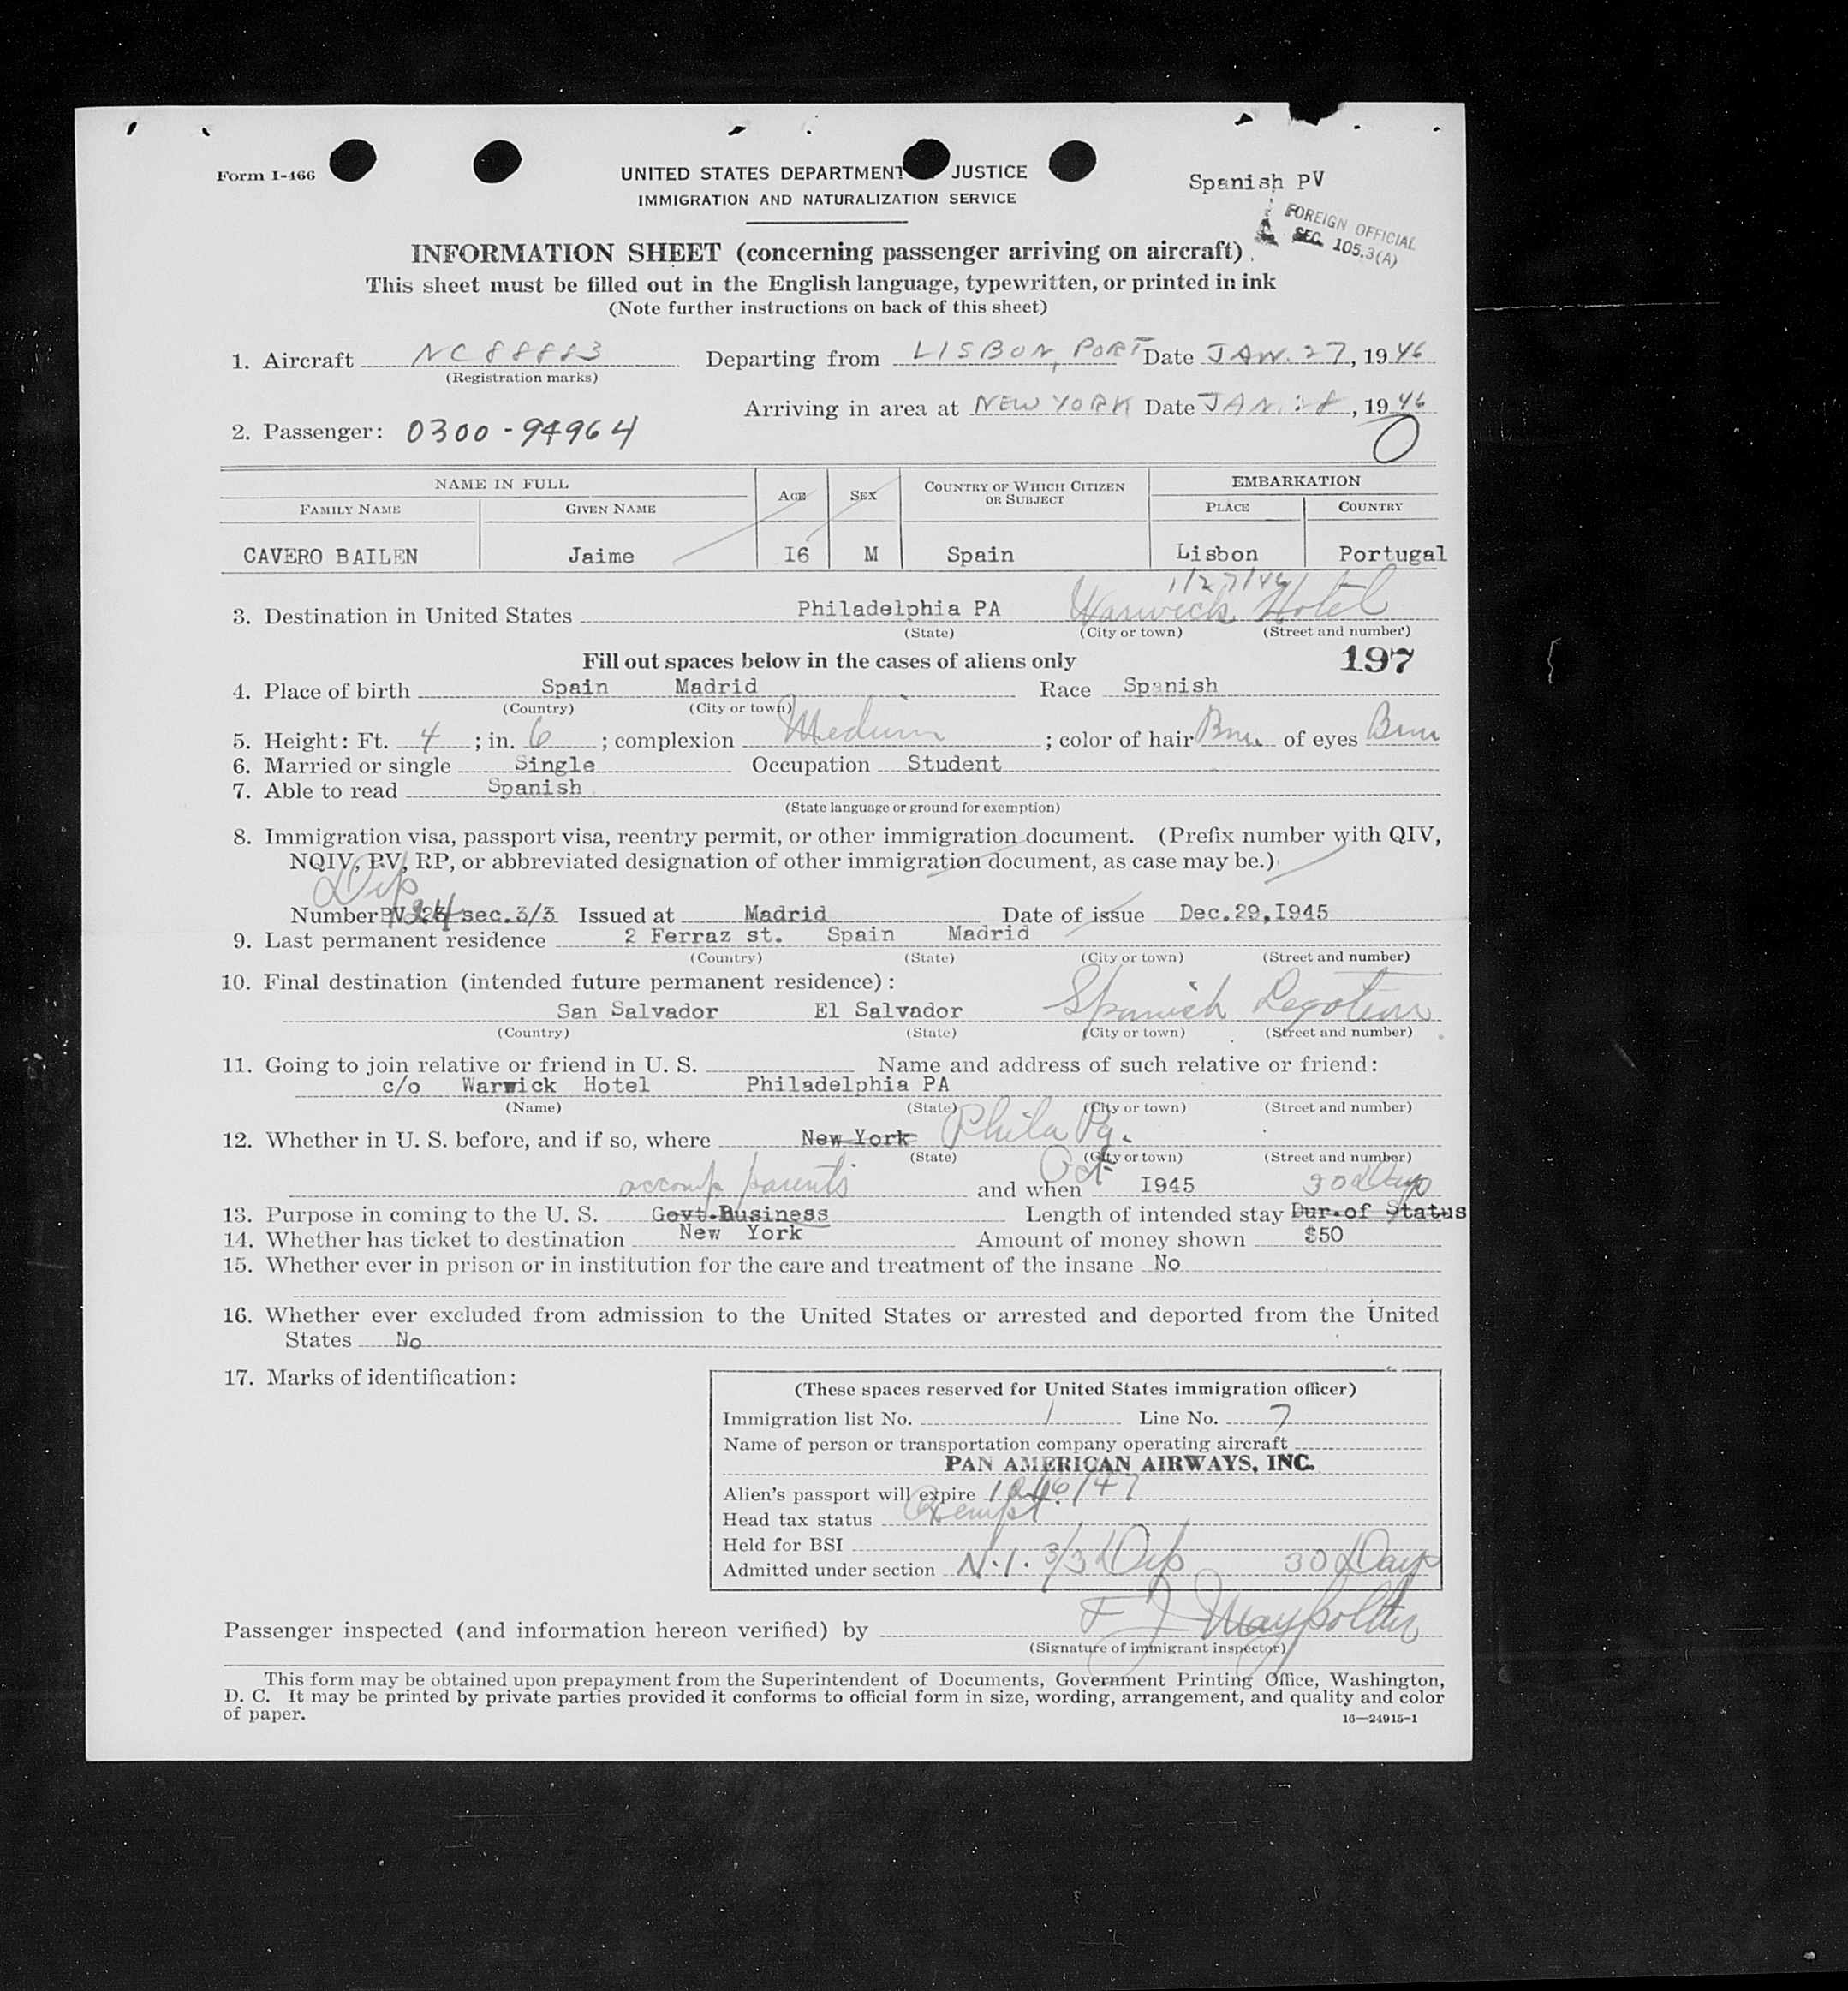 Form I-466
UNITED STATES DEPARTMENT JUSTICE
IMMIGRATION AND NATURALIZATION SERVICE
Spanish PV
FOREIGN OFFICIAL
SEC. 105.3(A)
INFORMATION SHEET (concerning passenger arriving on aircraft)
This sheet must be filled out in the English language, typewritten, or printed in ink
(Note further instructions on back of this sheet)
1. Aircraft NC88883 Departing from LISBON, PORT Date JAN. 27, 1946
(Registration marks)
Arriving in area at NEW YORK Date JAN. 28, 1946
2. Passenger: 0300-94964
0
NAME IN FULL AGE SEX COUNTRY OF WHICH CITIZEN OR SUBJECT EMBARKATION
FAMILY NAME GIVEN NAME PLACE COUNTRY
CAVERO BAILEN Jaime I6 M Spain Lisbon Portugal
1/27/46
3. Destination in United States Philadelphia PA Warwick Hotel
(State) (City or town) (Street and number)
Fill out spaces below in the cases of aliens only 197
4. Place of birth Spain Madrid Race Spanish
(Country) (City or town)
5. Height: Ft. 4 ; in. 6 ; complexion Medium ; color of hair Brn of eyes Brn
6. Married or single Single Occupation Student
7. Able to read Spanish
(State language or ground for exemption)
8. Immigration visa, passport visa, reentry permit, or other immigration document. (Prefix number with QIV,
NQIV, PV, RP, or abbreviated designation of other immigration document, as case may be.)
Dip
Number PV sec. 3/3 Issued at Madrid Date of issue Dec.29,I945
9. Last permanent residence 2 Ferraz st. Spain Madrid
(Country) (State) (City or town) (Street and number)
10. Final destination (intended future permanent residence):
San Salvador El Salvador Spanish Legation
(Country) (State) (City or town) (Street and number)
11. Going to join relative or friend in U. S. Name and address of such relative or friend:
c/o Warwick Hotel Philadelphia PA
(Name) (State) (City or town) (Street and number)
12. Whether in U. S. before, and if so, where New York Phila Pa.
(State) (City or town) (Street and number)
accomp parents and when Oct I945 30 Days
13. Purpose in coming to the U. S. Govt.Business Length of intended stay Dur.of Status
14. Whether has ticket to destination New York Amount of money shown $50
15. Whether ever in prison or in institution for the care and treatment of the insane No
16. Whether ever excluded from admission to the United States or arrested and deported from the United
States No
17. Marks of identification:
(These spaces reserved for United States immigration officer)
Immigration list No. 1 Line No. 7
Name of person or transportation company operating aircraft
PAN AMERICAN AIRWAYS, INC.
Alien's passport will expire
Head tax status Exempt
Held for BSI
Admitted under section N.I. 3/3 Dip 30 Days
Passenger inspected (and information hereon verified) by
(Signature of immigrant inspector)
This form may be obtained upon prepayment from the Superintendent of Documents, Government Printing Office, Washington,
D. C. It may be printed by private parties provided it conforms to official form in size, wording, arrangement, and quality and color
of paper.
16—24915-1